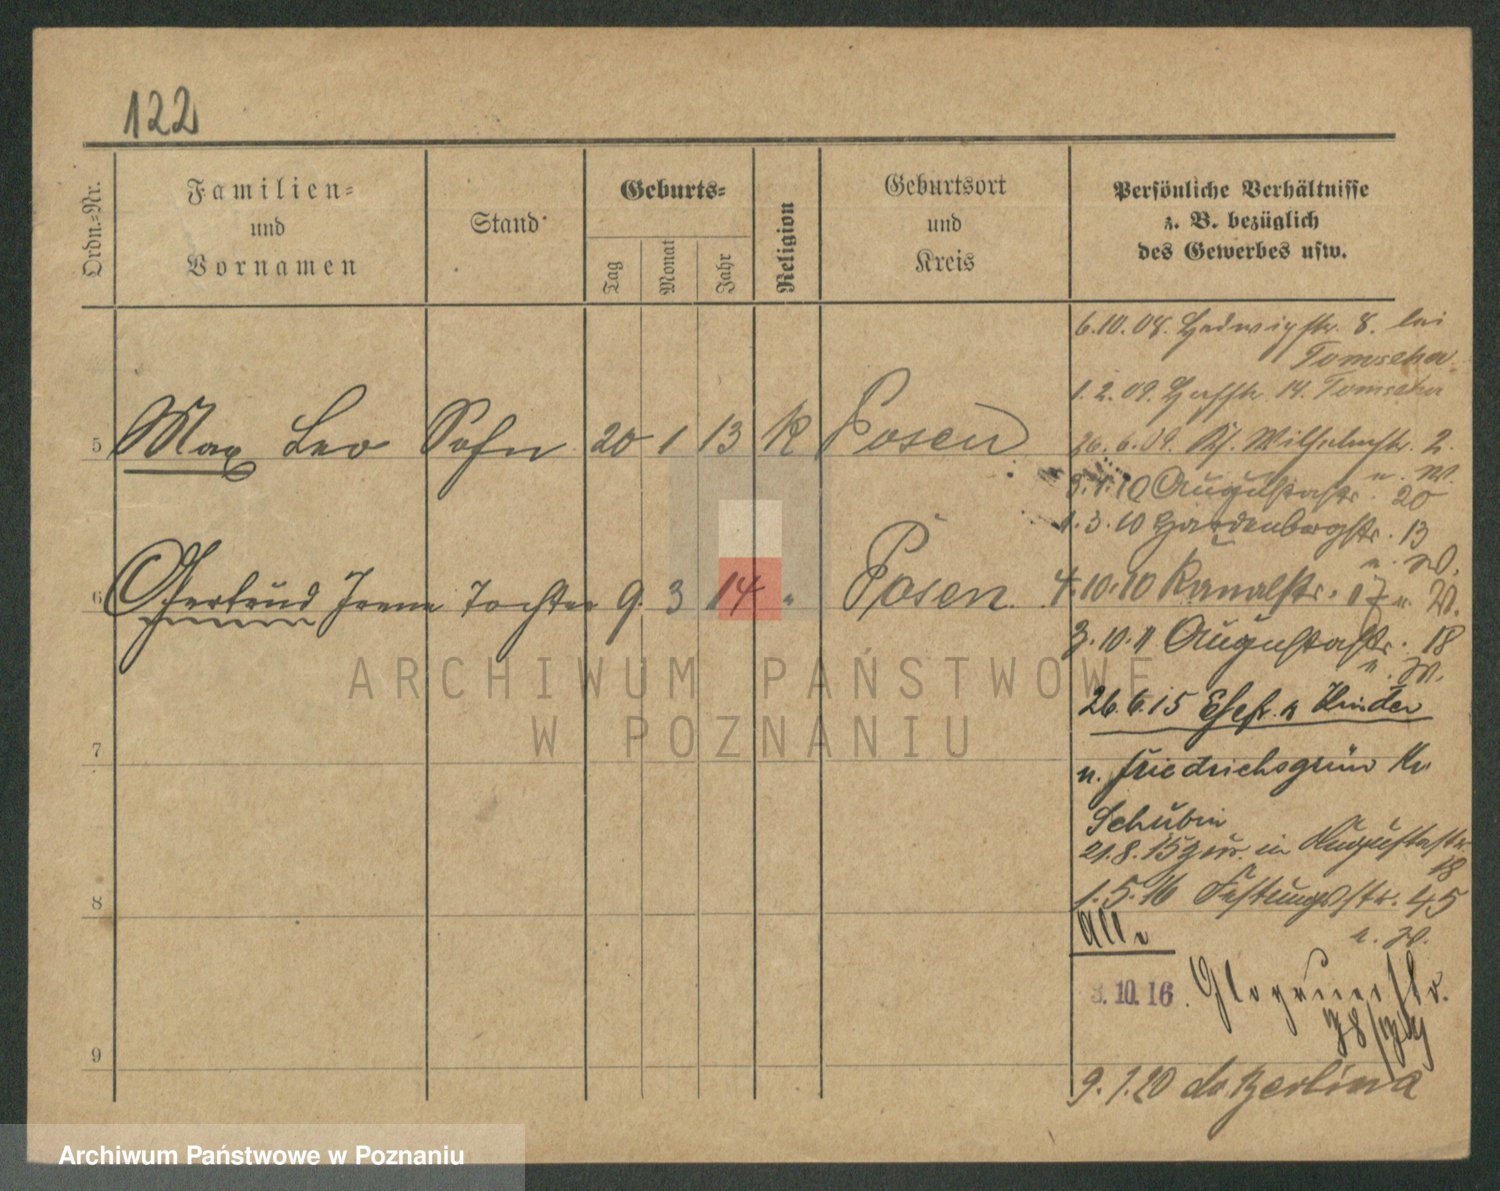 122
Ordn.-Nr.
Familien-
und
Vornamen
Stand
Geburts-
Tag
Monat
Jahr
Religion
Geburtsort
und
Kreis
Persönliche Verhältnisse
z. B. bezüglich
des Gewerbes usw.
6.10.08. Hedwigstr. 8. bei
Tomscha
1.2.09. 14. Tomscha
5 Max Leo Sohn 20 1 13 K Posen
26.6.09. Kl. Wilhelmstr. 2.
u. W.
3.1.10 Augustastr. 20
1.3.10 Hardenbergstr. 13
u. W.
6 Gertrud Irene Tochter 9. 3 14 " Posen
4.10.10 Kanalstr. 17 u. W.
3.10.11 Augustastr. 18
u. W.
26.6.15 Ehefr. u Kinder
n. Friedrichsgrün Kr.
7
Schubin
21.8.15 zur. in Augustastr.
18
8
1.5.16 Festungsstr. 45
u. W.
All.
3.10.16. Glogauerstr.
9
9.1.20 do Berlina
ARCHIWUM PAŃSTWOWE
W POZNANIU
Archiwum Państwowe w Poznaniu